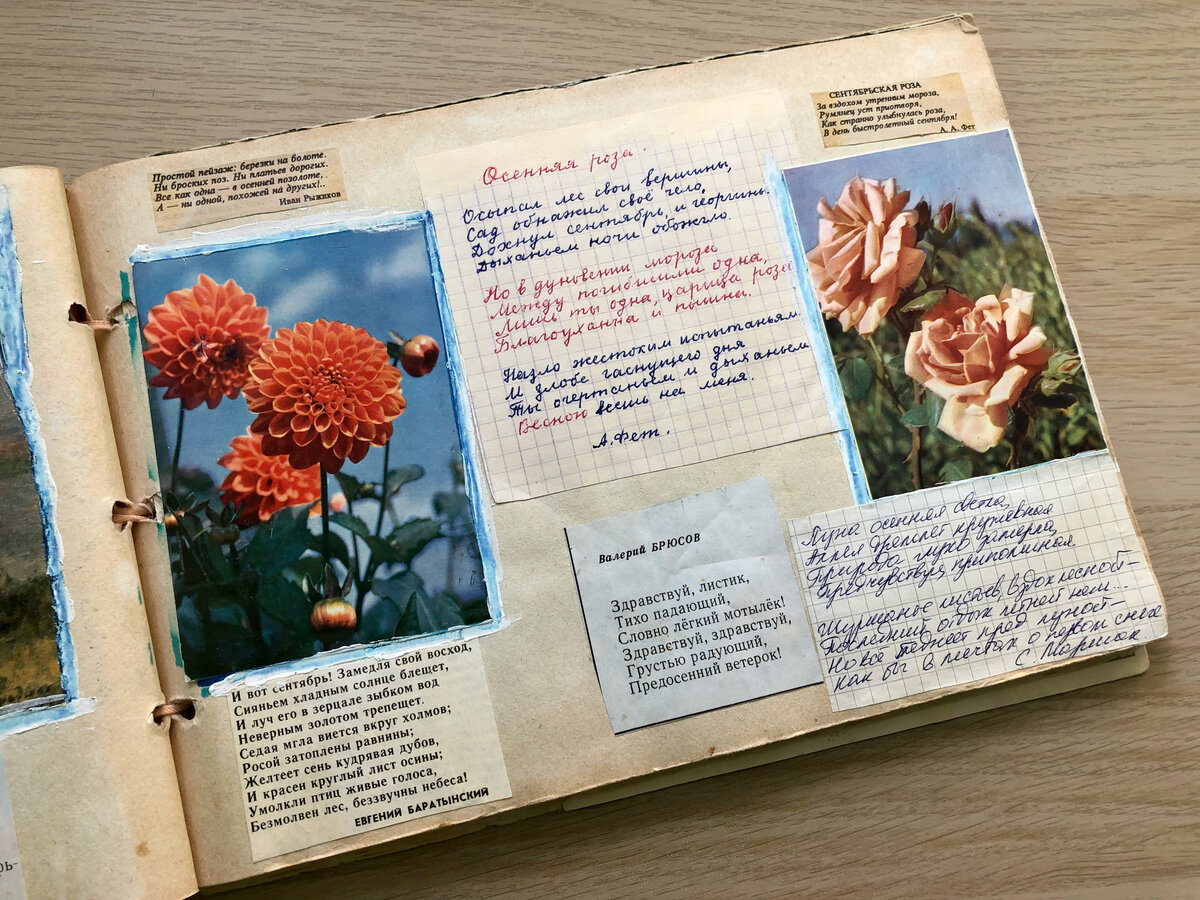 Простой пейзаж: березки на болоте.
Ни броских поз. Ни платьев дорогих.
Все как одна — в осенней позолоте,
А — ни одной, похожей на других!..
Иван Рыжиков
Осенняя роза.
Осыпал лес свои вершины,
Сад обнажил своё чело,
Дохнул сентябрь, и георгины
Дыханьем ночи обожгло.
Но в дуновении мороза
Между погибшими одна,
Лишь ты одна, царица роза
Благоуханна и пышна.
Назло жестоким испытаньям
И злобе гаснущего дня
Ты очертаньем и дыханьем
Весною веешь на меня.
А. Фет.
СЕНТЯБРЬСКАЯ РОЗА
За вздохом утренним мороза,
Румянец уст приотворя,
Как странно улыбнулась роза,
В день быстролетный сентября!
А. А. Фет
И вот сентябрь! Замедля свой восход,
Сияньем хладным солнце блещет,
И луч его в зерцале зыбком вод
Неверным золотом трепещет.
Седая мгла виется вкруг холмов;
Росой затоплены равнины;
Желтеет сень кудрявая дубов,
И красен круглый лист осины;
Умолкли птиц живые голоса,
Безмолвен лес, беззвучны небеса!
ЕВГЕНИЙ БАРАТЫНСКИЙ
Валерий БРЮСОВ
Здравствуй, листик,
Тихо падающий,
Словно лёгкий мотылёк!
Здравствуй, здравствуй,
Грустью радующий,
Предосенний ветерок!
Луна осенняя светла,
Аллея дремлет кружевная
Природа глухо замерла,
Предчувствуя, припоминая.
Шуршанье листьев, вздох лесной –
Последний отдых
Новое
Как бы в мечтах о первом снеге
рь-